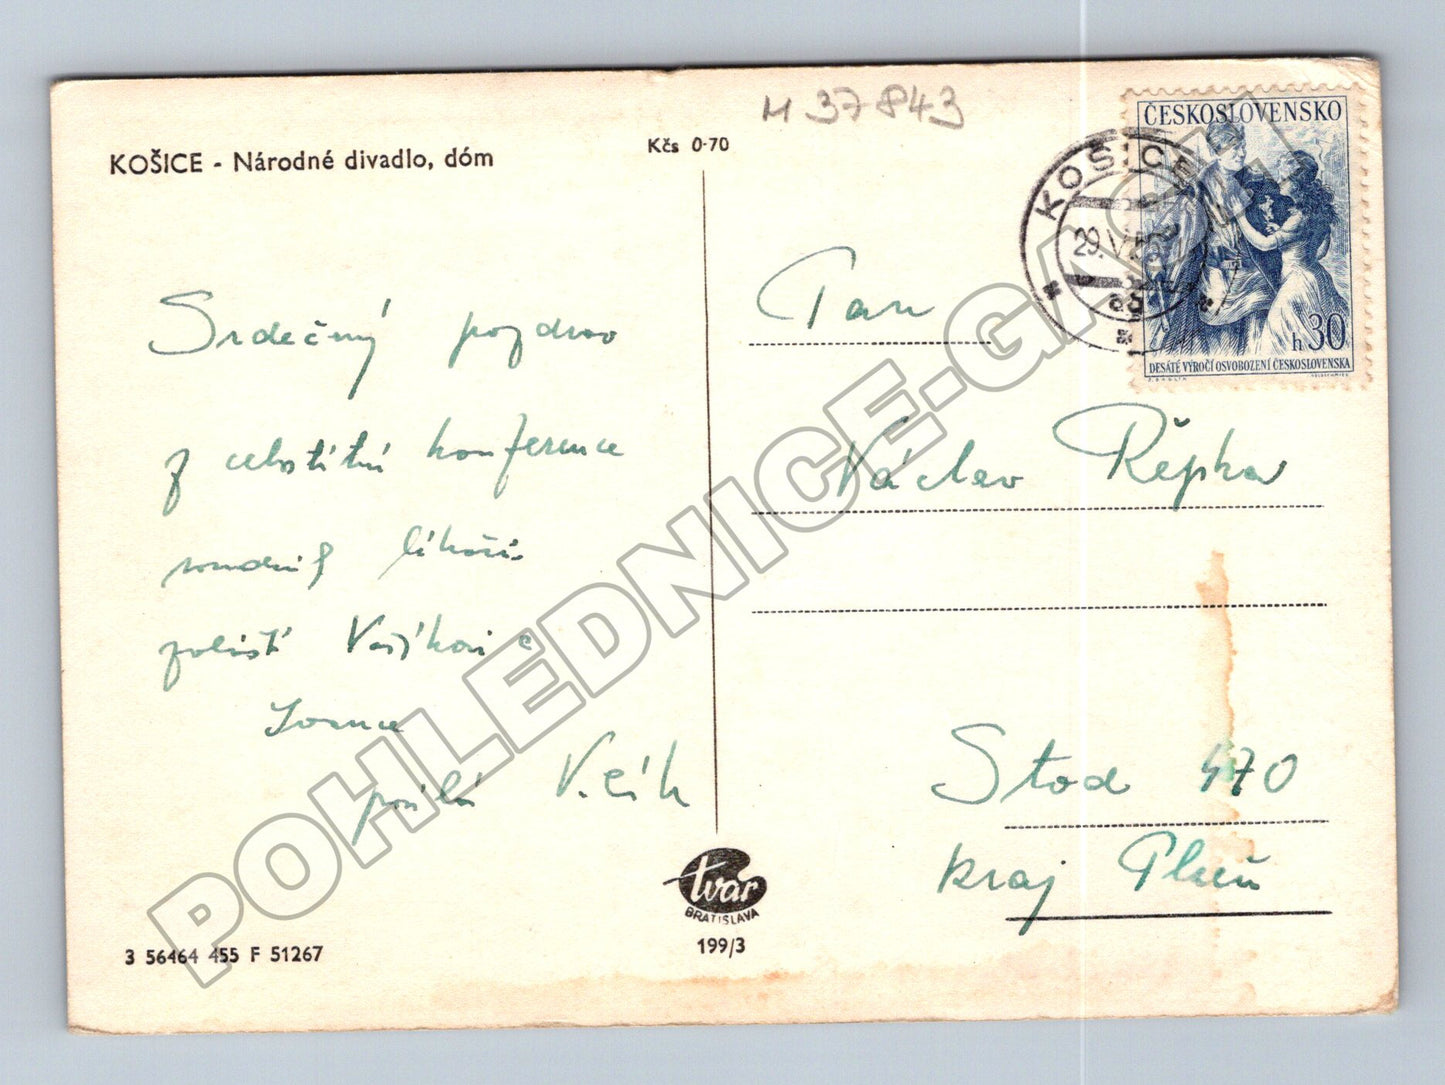 M 37843
KOŠICE - Národné divadlo, dóm
Kčs 0·70
ČESKOSLOVENSKO
h 30
DESÁTÉ VÝROČÍ OSVOBOZENÍ ČESKOSLOVENSKA
KOŠICE
29.V.
Srdečný pozdrav
z celostátní konference
soudních lékařů
Pan
Václav Řepka
Stod 470
Kraj Plzeň
posílá
tvar
BRATISLAVA
199/3
3 56464 455 F 51267
POHLEDNICE-GACR